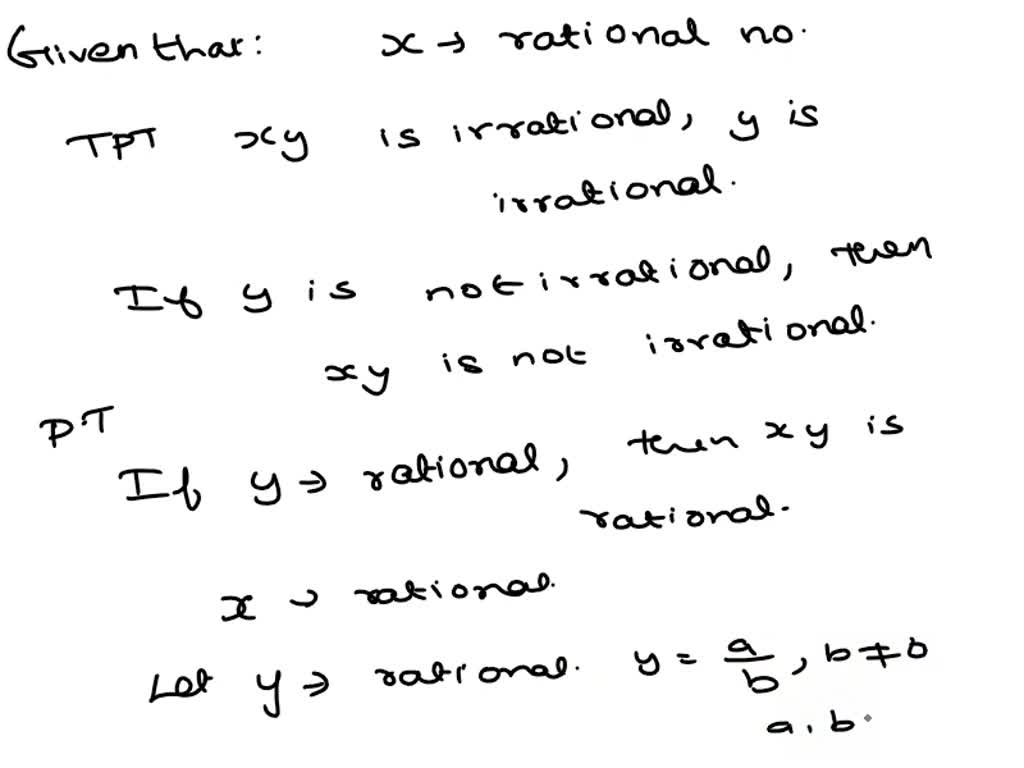 Given that: x → rational no.
TPT xy is irrational, y is
irrational.
If y is not irrational, then
xy is not irrational.
P.T
If y → rational, then xy is
rational.
x → rational.
Let y → rational. y = a/b, b ≠ 0
a, b